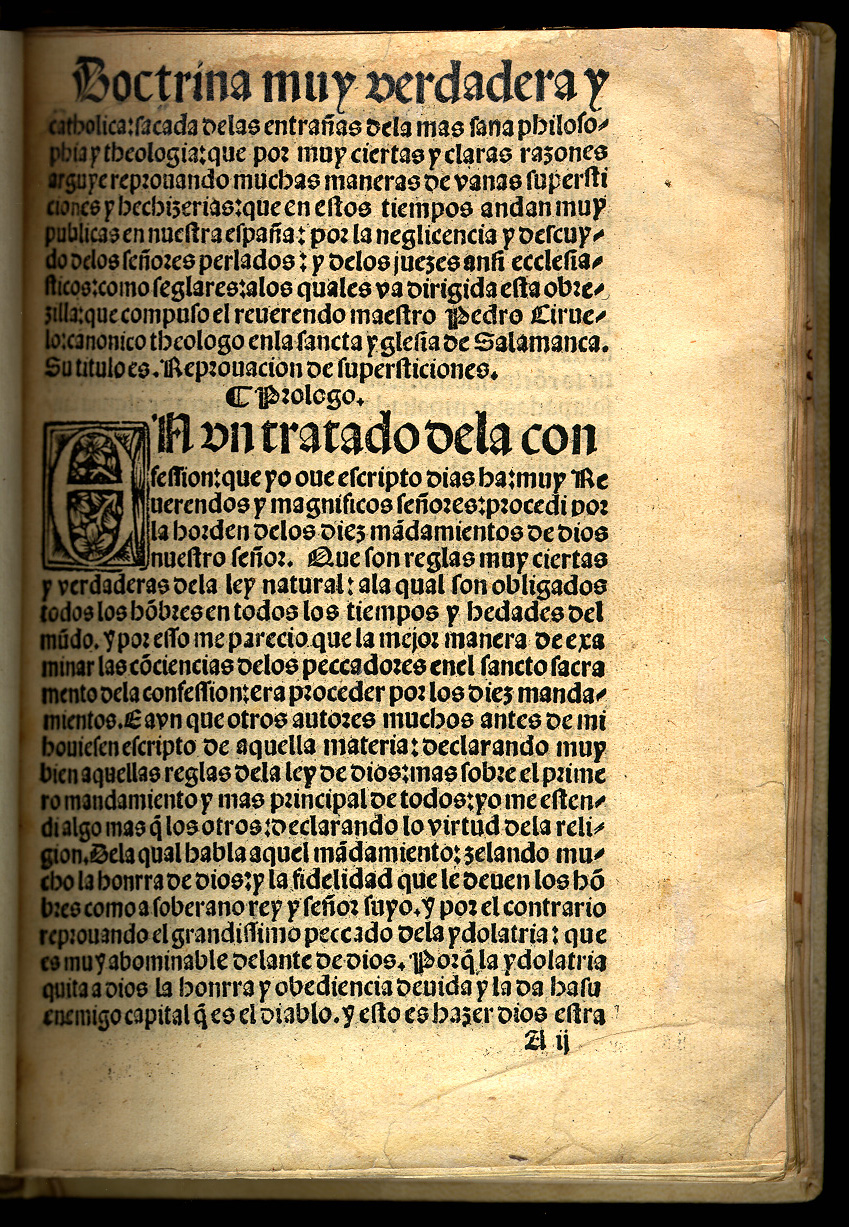 Doctrina muy verdadera y
catholica: sacada delas entrañas dela mas sana philoso-
phia y theologia: que por muy ciertas y claras razones
arguye reprouando muchas maneras de vanas supersti
ciones y hechizerias: que en estos tiempos andan muy
publicas en nuestra españa: por la neglicencia y descuy-
do delos señores perlados: y delos juezes ansi ecclesia-
sticos: como seglares: alos quales va dirigida esta obre-
zilla: que compuso el reuerendo maestro Pedro Cirue-
lo: canonico theologo enla sancta yglesia de Salamanca.
Su titulo es. Reprouacion de supersticiones.
¶ Prologo.
EN vn tratado dela con
fession: que yo oue escripto dias ha: muy Re
uerendos y magnificos señores: procedi por
la horden delos diez mãdamientos de dios
nuestro señor. Que son reglas muy ciertas
y verdaderas dela ley natural: ala qual son obligados
todos los hõbres en todos los tiempos y hedades del
mũdo. y por esso me parecio que la mejor manera de exa
minar las cõciencias delos peccadores enel sancto sacra
mento dela confession: era proceder por los diez manda-
mientos. E ayn que otros autores muchos antes de mi
houiesen escripto de aquella materia: declarando muy
bien aquellas reglas dela ley de dios: mas sobre el prime
ro mandamiento y mas principal de todos: yo me esten-
di algo mas q̃ los otros: declarando lo virtud dela reli-
gion. Dela qual habla aquel mãdamiento: zelando mu-
cho la honrra de dios: y la fidelidad que le deuen los hõ
bres como a soberano rey y señor suyo. y por el contrario
reprouando el grandissimo peccado dela ydolatria: que
es muy abominable delante de dios. Porq̃ la ydolatria
quita a dios la honrra y obediencia deuida y la da ha su
enemigo capital q̃ es el diablo. y esto es hazer dios estra
A ij